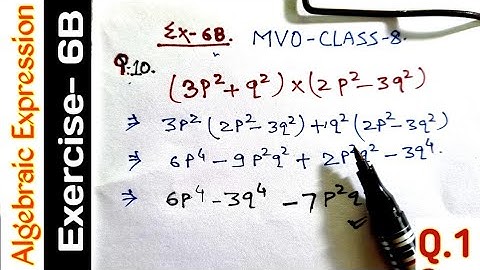 Algebraic Expression
Exercise- 6B
Ex-6B. MVO-CLASS-8.
Q.10.
(3p²+q²)×(2p²-3q²)
⇒ 3p²(2p²-3q²)+q²(2p²-3q²)
⇒ 6p⁴-9p²q²+2p²q²-3q⁴.
⇒ 6p⁴-3q⁴-7p²q
Q.1